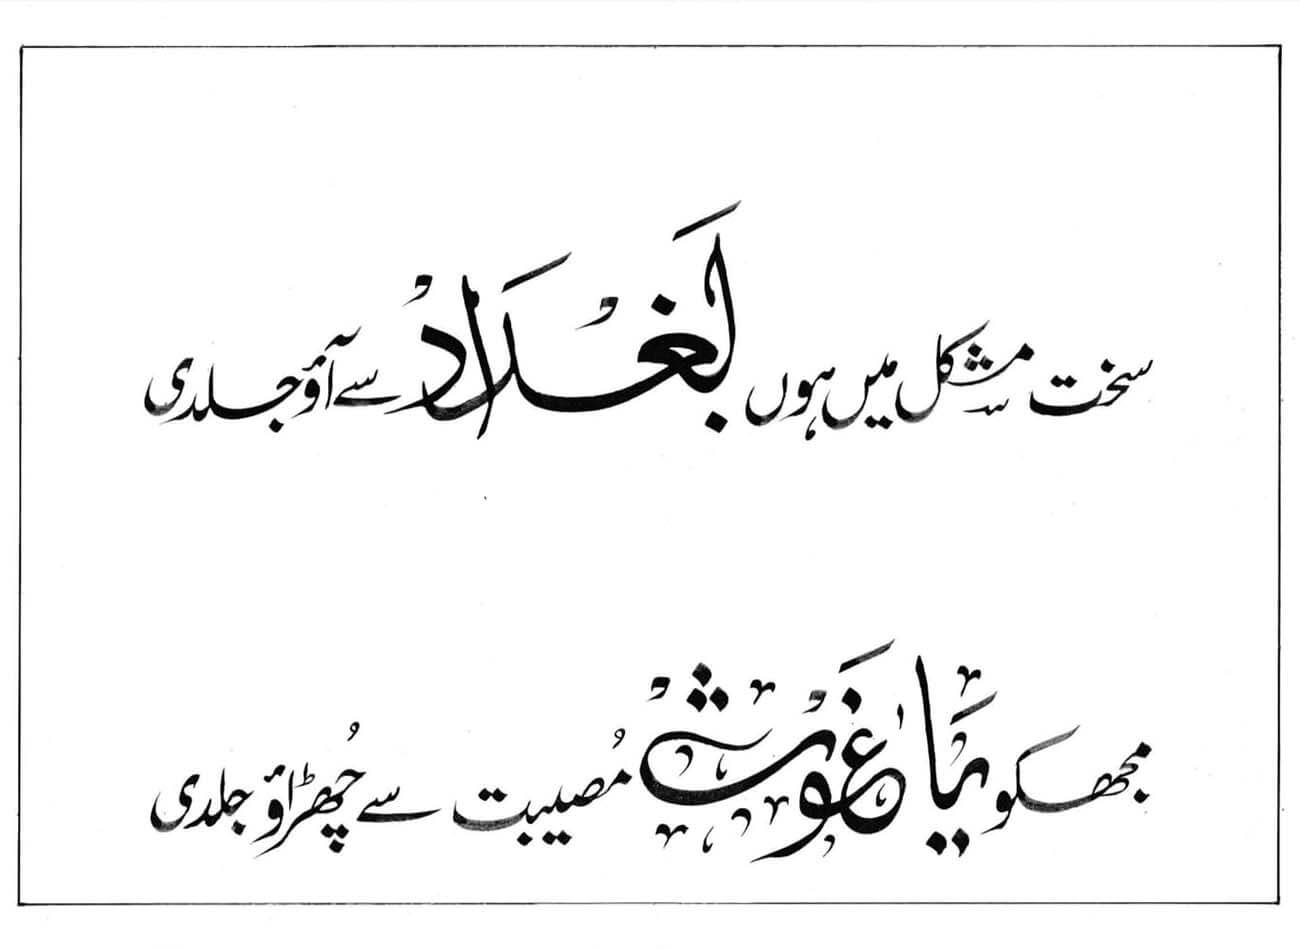 سخت مشکل میں ہوں بَغْدَادْ سے آؤ جلدی
مجھکو یَا غَوْثْ مُصیبت سے چُھڑاؤ جلدی